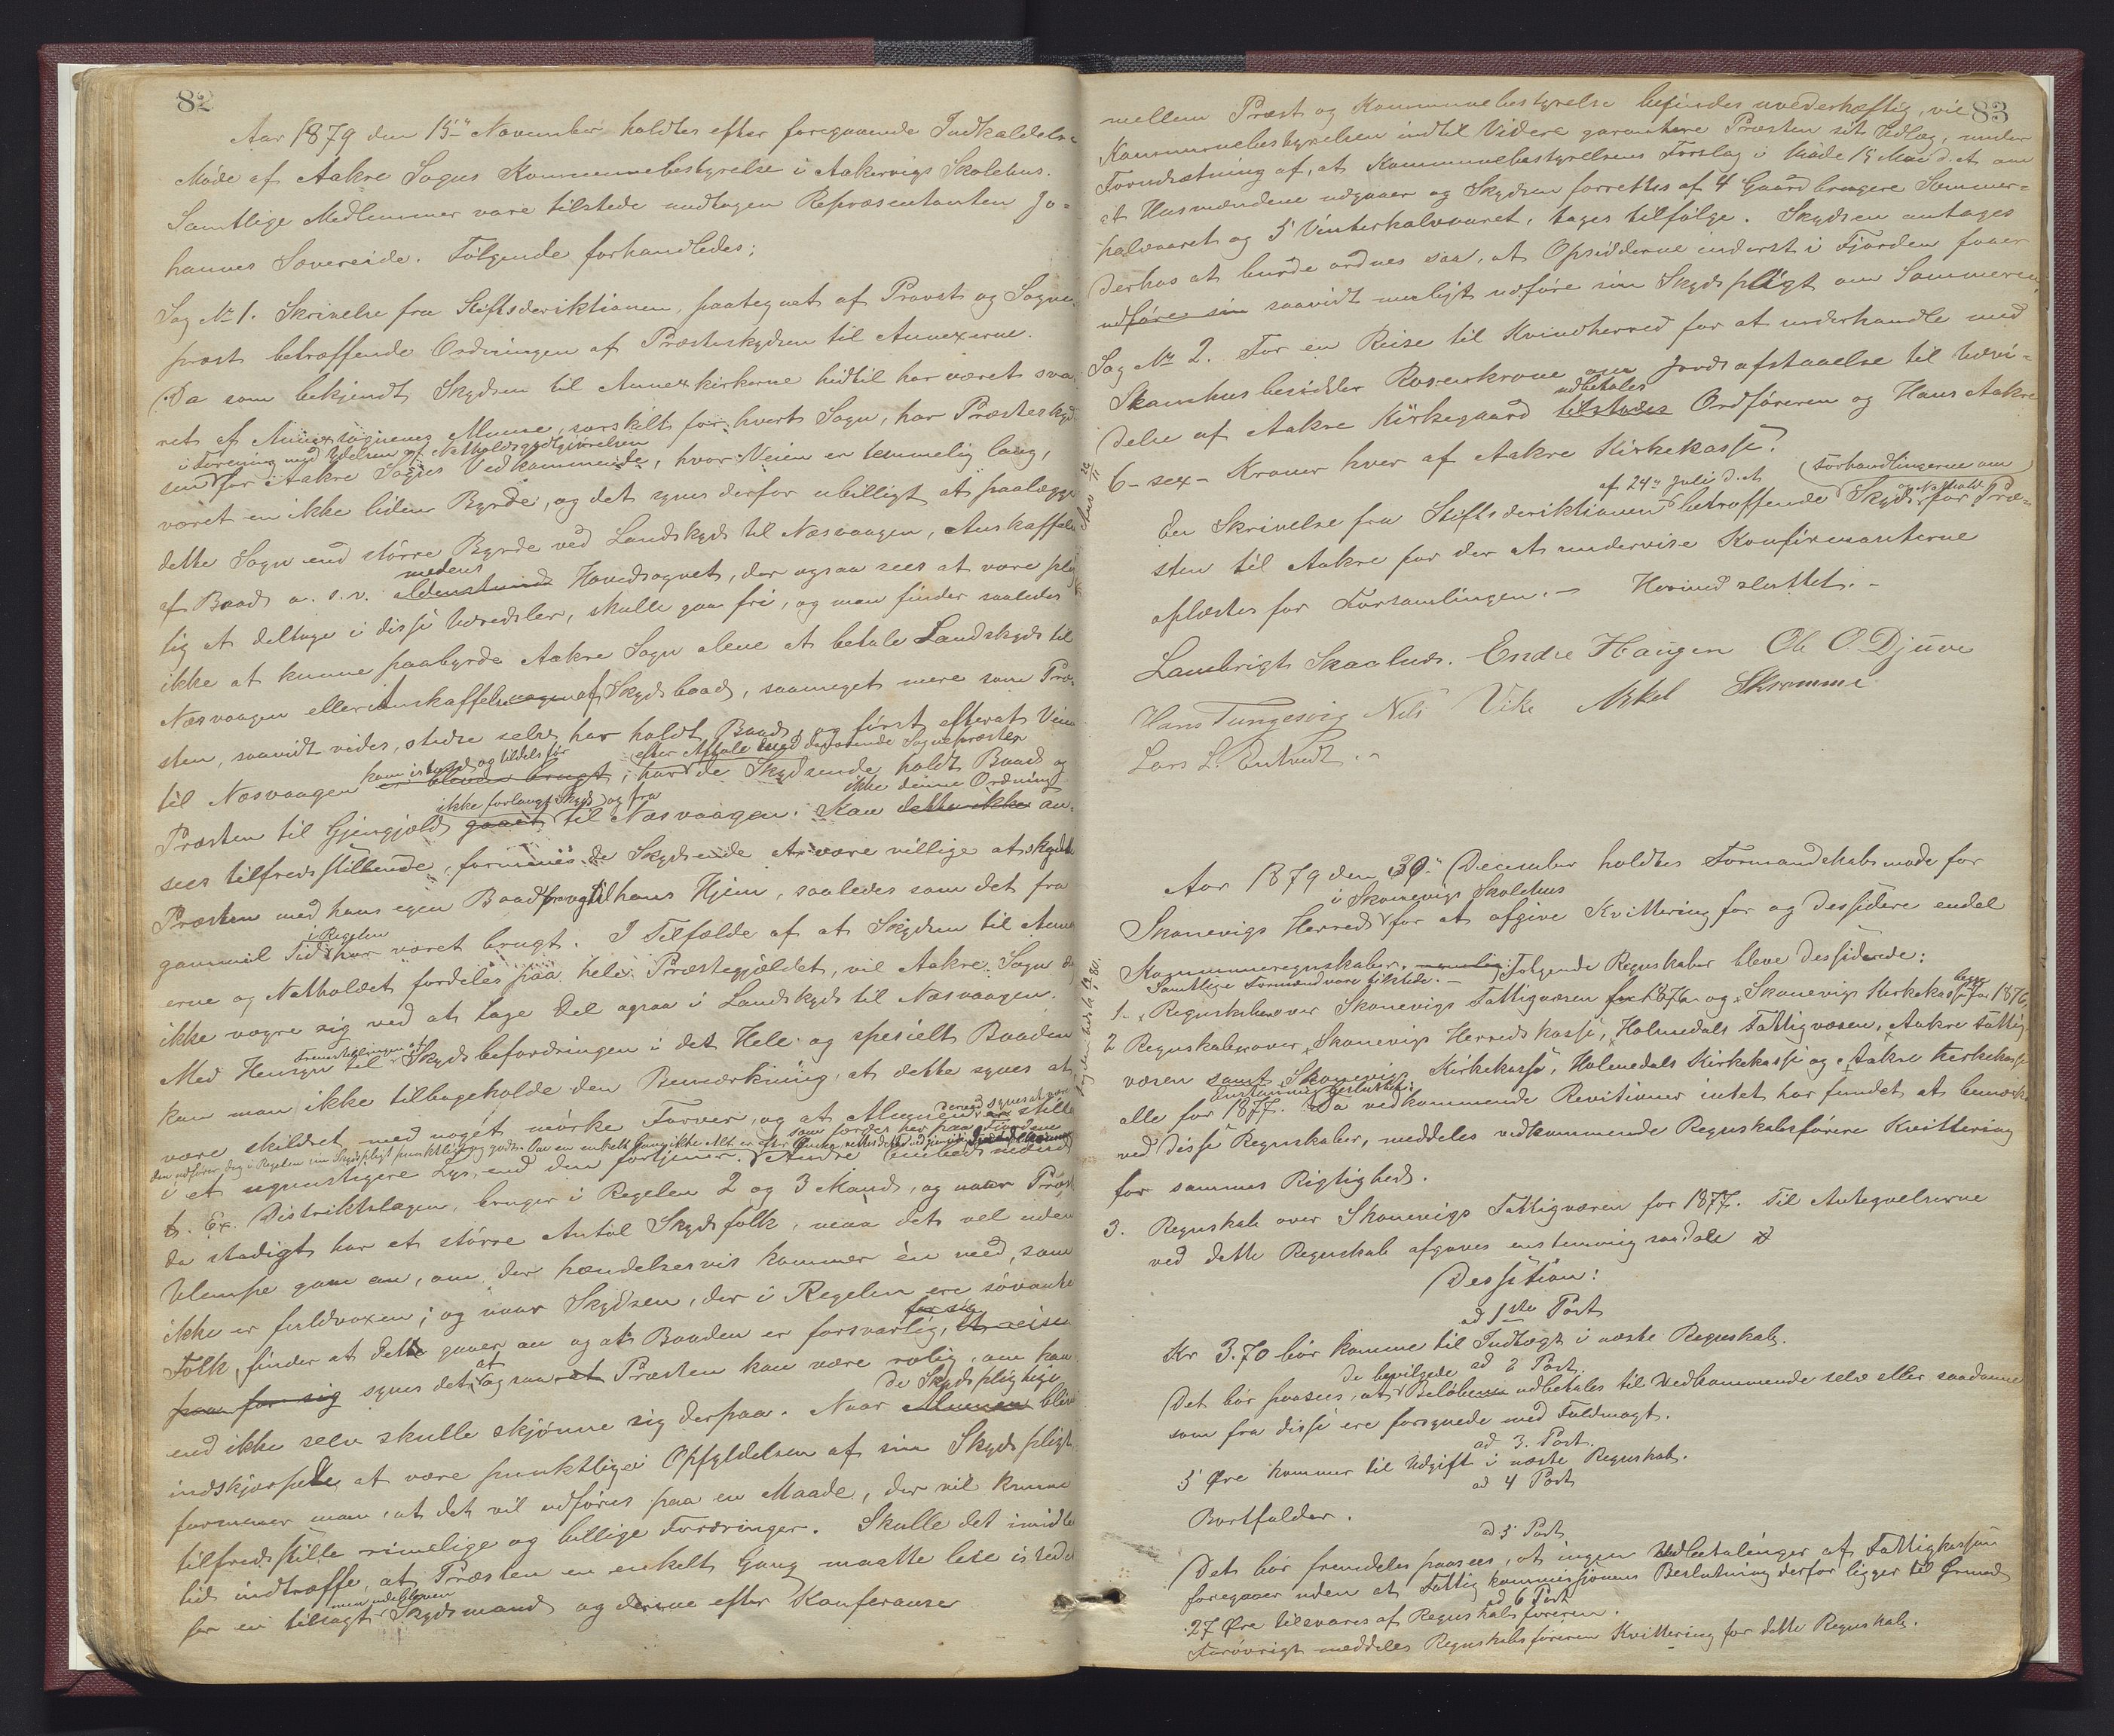 82
Aar 1879 den 15de November holdtes efter foregaaende Indkaldelse
Møde af Aakre Sogns Kommunebestyrelse i Aakervigs Skolehus.
Samtlige Medlemmer vare tilstede undtagen Repræsentanten Jo-
hannes Sævereide. Følgende forhandledes:
Sag No 1. Skrivelse fra Stiftsderiktionen, paategnet af Provst og Sogne-
præst betræffende Ordningen af Presteskydsen til Annexerne.
Da som bekjendt Skydsen til Annexkirkerne hidtil har været sva-
ret af Annexsognenes Almue, særskilt for hvert Sogn, har Presteskyd-
i Forening med Ydelsen af Natholdsgodtgjørelsen
sen for Aakre Sogns Vedkommende, hvor Veien er temmelig lang,
været en ikke liden Byrde, og det synes derfor ubilligt at paalægge
dette Sogn end større Byrde ved Landskyds til Næsvaagen, Anskaffelse
medens
af Baad o. s. v. aldenstund Hovedsognet, der ogsaa sees at være plig-
tig at deltage i disse Udredsler, skulle gaa fri, og man finder saaledes
ikke at kunne paabyrde Aakre Sogn alene at betale Landskyds til
Næsvaagen eller Anskaffelse af Skydsbaad, saameget mere som Præ-
sten, saavidt vides, stedse selv har holdt Baad, og først efterat Veien
kom istand, og tildels før efter Aftale med daværende Sogneprester
til Næsvaagen er bleven brugt, har de Skydsende holdt Baad og
ikke forlangt Skyds og fra ikke denne Ordning
Præsten til Gjengjæld gaaet til Næsvaagen. Kan dette ikke an-
sees tilfredsstillende, formenes de Skydsende at være villige at skydse
Præsten med hans egen Baad fra og til hans Hjem, saaledes som det fra
i Regelen
gammel Tid har været brugt. I Tilfælde af at Skydsen til Annex-
erne og Natholdet fordeles paa hele Præstegjældet, vil Aakre Sogn da
ikke vægre sig ved at tage Del ogsaa i Landskyds til Næsvaagen.
Fremstillingen af
Med Hensyn til Skydsbefordringen i det Hele og specielt Baaden
kan man ikke tilbageholde den Bemærkning, at dette synes at
derved synes at være
være skildret med noget mørke Farver, og at Almuen er stillet
som færdes her paa Fjordene
i et ugunstigere Lys, end den fortjener. Andre Embedsmænd
t. Ex. Distriktslægen, bruger i Regelen 2 og 3 Mand, og naar Præsten
da stadigt har et større Antal Skydsfolk, maa det vel uden
Ulempe gaa an, om der hændelsesvis kommer en med, som
ikke er fuldvoxen; og naar Skydsen, der i Regelen ere søvante
for sig
Folk, finder at dette gaaer an og at Baaden er forsvarlig, at reise
at
paa for sig synes det, ogsaa at Præsten kan være rolig, om han
de Skydspligtige
end ikke selv skulle skjønne sig derpaa. Naar Almuen blive
indskjærpede at være punktlige i Opfyldelsen af sin Skydspligt,
formener man, at det vil udføres paa en Maade, der vil kunne
tilfredsstille rimelige og billige Fordringer. Skulle det imidler-
tid indtræffe, at Præsten en enkelt Gang maatte leie istedet
men udebleven
for en tilsagt Skydsmand og denne efter Konferanse
83
mellem Præst og Kommunebestyrelse befindes uvederhæftig, vil
Kommunebestyrelsen indtil Videre garantere Præsten sit Udlæg, under
Forudsætning af, at Kommunebestyrelsens Forslag i Møde 15 Mai d. A. om
at Husmændene udgaaer og Skydsen forrettes af 4 Gaardbrugere Sommer-
halvaaret og 5 Vinterhalvaaret, tages tilfølge. Skydsen antages
derhos at burde ordnes saa, at Opsidderne inderst i Fjorden faaer
udføre sin saavidt muligt udføre sin Skydspligt om Sommeren.
Sag No 2. For en Reise til Kvindherred for at underhandle med
Stamhusbesidder Rosenkrone om Jordafstaaelse til Udvi-
udbetales
delse af Aakre Kirkegaard tilstodes Ordføreren og Hans Aakre
6 - sex - Kroner hver af Aakre Kirkekasse.
af 24de Juli d. A. Forhandlingerne om
En Skrivelse fra Stiftsderiktionen betræffende Skyds og Nathold for Præ-
sten til Aakre for der at undervise Konfirmanterne
oplæstes for Forsamlingen. - Hermed sluttet. -
Lambrigt Skaalnæs. Endre Haugen Ole O. Djuve
Hans Tungesvig Nils Vike Mikel Skromme
Lars L. Entvedt.
Aar 1879 den 30. December holdtes Formandskabsmøde for
i Skonevigs Skolehus
Skonevigs Herred for at afgive Kvittering for og dessidere endel
Kommuneregnskaber, nemlig: Følgende Regnskaber bleve dessiderede:
Samtlige Formænd vare tilstede. -
1. Regnskaber over Skonevigs Fattigvæsen for 1876 og Skonevigs Kirkekasse begge for 1876,
2 Regnskaber over Skonevigs Herredskasse, Holmedals Fattigvæsen, Aakre Fattig-
væsen samt Skonevigs Kirkekasse, Holmedals Kirkekasse og Aakre Kirkekasse
Enstemmig besluttet:
alle for 1877. Da vedkommende Revitioner intet har fundet at bemærke
ved disse Regnskaber, meddeles vedkommende Regnskabsførere Kvittering
for sammes Rigtighed.
3. Regnskab over Skonevigs Fattigvæsen for 1877. Til Antegnelserne
ved dette Regnskab afgaves enstemmig saadale
Dessition:
ad 1ste Post
Kr 3.70 bør komme til Indtægt i næste Regnskab.
ad 2 Post.
de bevilgede
Det bør paasees, at Beløbene udbetales til Vedkommende selv eller saadanne
som fra disse ere forsynede med Fuldmagt.
ad 3. Post.
5 Øre kommer til Udgift i næste Regnskab.
ad 4 Post
Bortfalder.
ad 5 Post
Det bør fremdeles paasees, at ingen Udbetalinger af Fattigkassen
foregaaer uden at Fattigkommissjonens Beslutning derfor ligger til Grund
ad 6 Post
27 Øre tilsvares af Regnskabsføreren.
Forøvrigt meddeles Regnskabsføreren Kvittering for dette Regnskab.